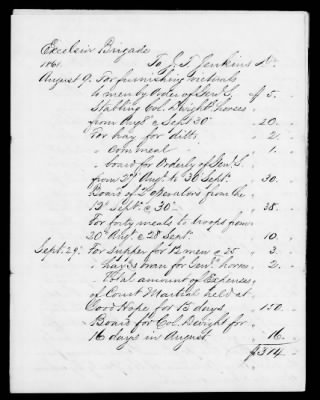 Excelsior Brigade
1861. To J. T. Jenkins Dr.
August 9. For furnishing victuals
to men by Order of Gen'l S, $ 5. "
Stabling Col. Dwight's horses
from Aug 8 @ Sept 30 20. "
For hay for ditto 2. "
" corn meal 1. "
" board for Orderly of Gen'l S.
from 2d Aug. to 30 Sept. 30. "
Board of 2 Operators from the
12th Sept. @ 30th 38. "
For forty meals to troops from
30th Aug. @ 28 Sept. 10. "
Sept. 29. For Supper for 12 men @ 25 3. "
" hay & man for Gen'l horses 2. "
Total amount of Expenses
of Court Martial held at
Good Hope, for 12 days 150. "
Board for Col. Dwight for
16 days in August 16. "
$314. "